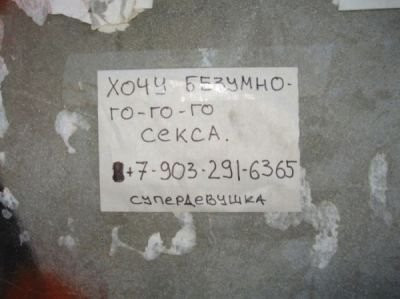 ХОЧУ БЕЗУМНО-
ГО-ГО-ГО
СЕКСА.
+7-903-291-6365
СУПЕРДЕВУШКА